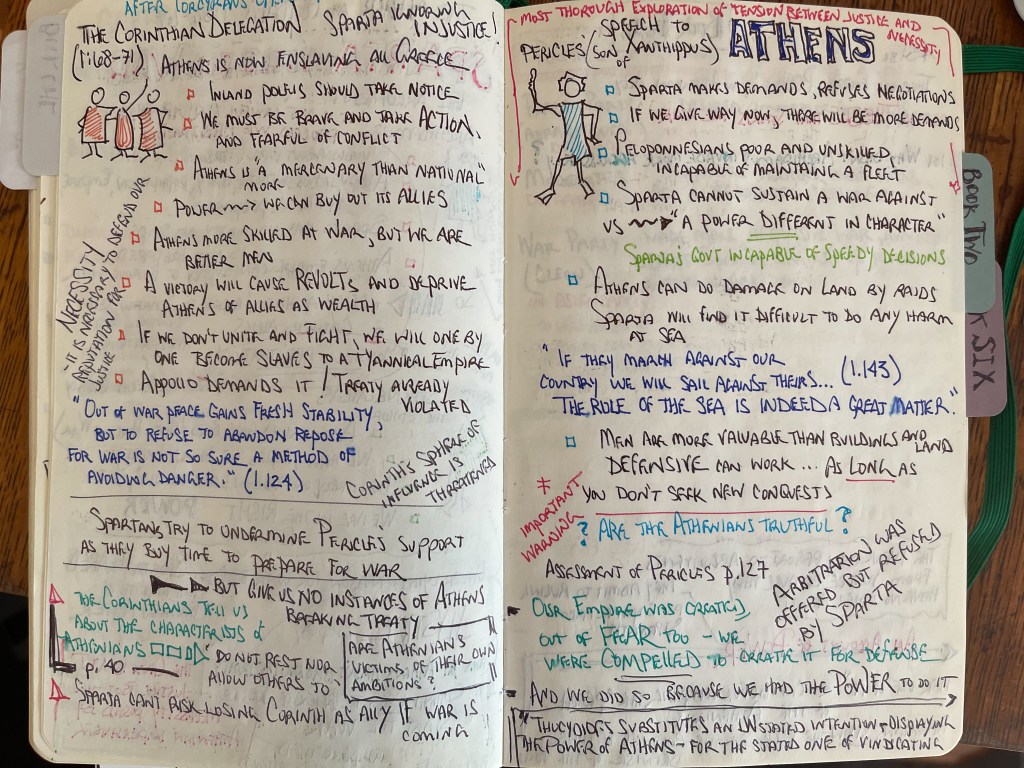 AFTER CORCYRANS
THE CORINTHIAN DELEGATION SPARTA IGNORING INJUSTICE!
(1.68-71) ATHENS IS NOW ENSLAVING ALL GREECE
▫ INLAND POLEIS SHOULD TAKE NOTICE
▫ WE MUST BE BRAVE AND TAKE ACTION,
AND FEARFUL OF CONFLICT
▫ ATHENS IS "A MERCENARY THAN NATIONAL"
MORE
▫ POWER → WE CAN BUY OUT ITS ALLIES
▫ ATHENS MORE SKILLED AT WAR, BUT WE ARE
BETTER MEN
▫ A VICTORY WILL CAUSE REVOLTS AND DEPRIVE
ATHENS OF ALLIES AS WEALTH
▫ IF WE DON'T UNITE AND FIGHT, WE WILL ONE BY
ONE BECOME SLAVES TO A TYANNICAL EMPIRE
▫ APPOLLO DEMANDS IT! TREATY ALREADY
VIOLATED
NECESSITY
"IT IS NECESSARY TO DEFEND OUR
REPUTATION FOR
JUSTICE
"OUT OF WAR PEACE GAINS FRESH STABILITY,
BUT TO REFUSE TO ABANDON REPOSE
FOR WAR IS NOT SO SURE A METHOD OF
AVOIDING DANGER." (1.124)
CORINTH'S SPHERE OF
INFLUENCE IS
THREATENED
SPARTANS TRY TO UNDERMINE PERICLES SUPPORT
AS THEY BUY TIME TO PREPARE FOR WAR
BUT GIVE US NO INSTANCES OF ATHENS
BREAKING TREATY
THE CORINTHIANS TELL US
ABOUT THE CHARACTERISTICS OF
ATHENIANS
p. 40
DO NOT REST NOR
ALLOW OTHERS TO
ARE ATHENIANS
VICTIMS OF THEIR OWN
AMBITIONS?
SPARTA CAN'T RISK LOSING CORINTH AS ALLY IF WAR IS
COMING
MOST THOROUGH EXPLORATION OF TENSION BETWEEN JUSTICE AND
NECESSITY
PERICLES' (SON OF XANTHIPPUS) SPEECH TO ATHENS
▫ SPARTA MAKES DEMANDS, REFUSES NEGOTIATIONS
▫ IF WE GIVE WAY NOW, THERE WILL BE MORE DEMANDS
▫ PELOPONNESIANS POOR AND UNSKILLED,
INCAPABLE OF MAINTAING A FLEET
▫ SPARTA CANNOT SUSTAIN A WAR AGAINST
VS → "A POWER DIFFERENT IN CHARACTER"
SPARTA'S GOVT INCAPABLE OF SPEEDY DECISIONS
▫ ATHENS CAN DO DAMAGE ON LAND BY RAIDS
SPARTA WILL FIND IT DIFFICULT TO DO ANY HARM
AT SEA
"IF THEY MARCH AGAINST OUR
COUNTRY WE WILL SAIL AGAINST THEIRS... (1.143)
THE RULE OF THE SEA IS INDEED A GREAT MATTER."
▫ MEN ARE MORE VALUABLE THAN BUILDINGS AND LAND
DEFENSIVE CAN WORK... AS LONG AS
YOU DON'T SEEK NEW CONQUESTS
* IMPORTANT
WARNING
? ARE THE ATHENIANS TRUTHFUL?
ASSESSMENT OF PERICLES p.127
ARBITRARION WAS
OFFERED BUT REFUSED
BY SPARTA
- OUR EMPIRE WAS CREATED
OUT OF FEAR TOO - WE
WERE COMPELLED TO CREATE IT FOR DEFENSE
- AND WE DID SO BECAUSE WE HAD THE POWER TO DO IT
"THUCYDIDES SUBSTITUTES AN UNSTATED INTENTION - DISPLAYING
THE POWER OF ATHENS - FOR THE STATED ONE OF VINDICATING
BOOK TWO
SIX